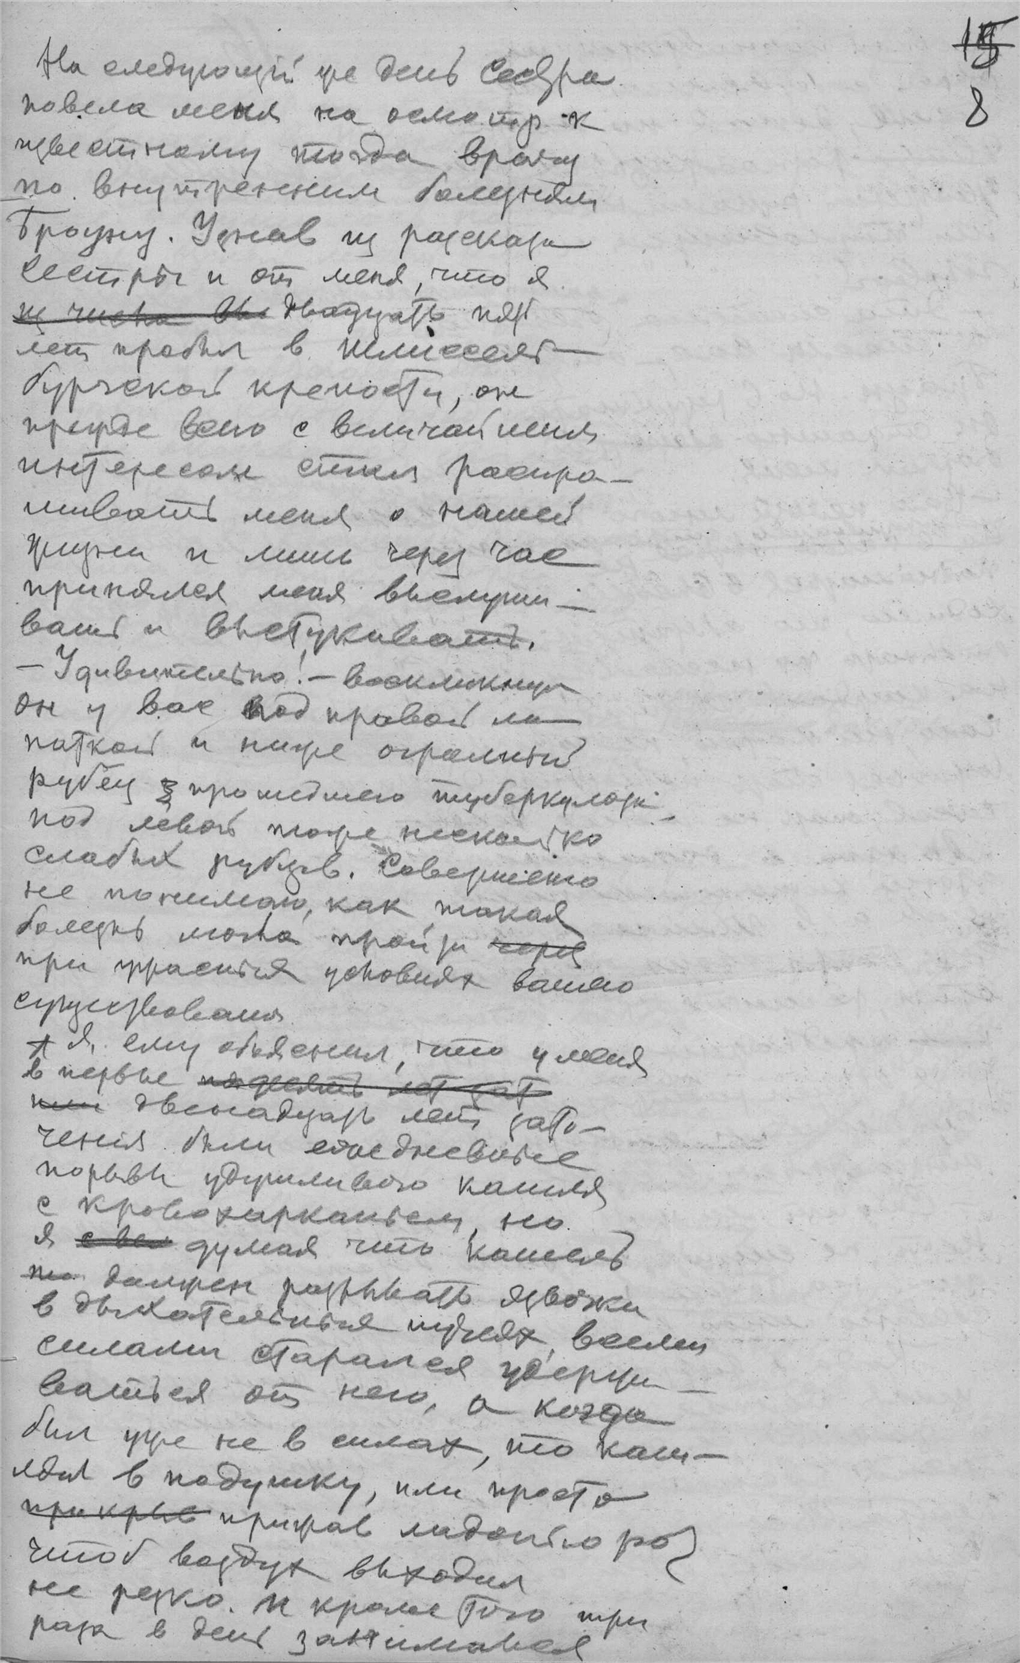 15
8
На следующiй же день сестра
повела меня на осмотр к
известному тогда врачу
по внутренним болезням
Броуну. Узнав из рассказа
сестры и от меня, что я
из числа вы двадцать пять
лет пробыл в Шлиссель-
бургской крепости, он
прежде всего с величайшим
интересом стал расспра-
шивать меня о нашей
жизни и лишь через час
принялся меня выслуши-
вать и выстукивать.
— Удивительно! — воскликнул
он у вас под правой ло-
паткой и ниже огромный
рубец прошедшего туберкулоза
под левой тоже несколько
слабых рубцов. Совершенно
не понимаю, как такая
болезнь могла пройти через
при ужасных условиях вашего
существования
Я ему объяснил, что у меня
в первые
двенадцать лет зато-
чения были ежедневные
порывы удушливого кашля
с кровохарканьем, но
я думая что кашель
должен разрывать язвочки
в дыхательных путях, всеми
силами старался удержи-
ваться от него, а когда
был уже не в силах, то каш-
лял в подушку, или просто
прикрыв прижав ладонью рот
чтоб воздух выходил
не резко. И кроме того три
раза в день занимался